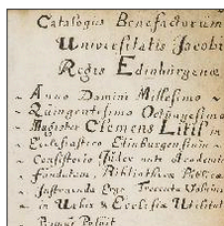 Catalogus Benefactorum
Universitatis Jacobi
Regis Edinburgenæ
Anno Domini Millesimo
Quingentesimo Octuagesimo
Magister Clemens Litil
Ecclesiastico Edinburgensium
Consistorio Judex ante Academiam
Fundatam, Bibliothecæ Publicæ
Instruenda Ergo Treccata Volumina
in Urbis & Ecclesiæ Utilitat